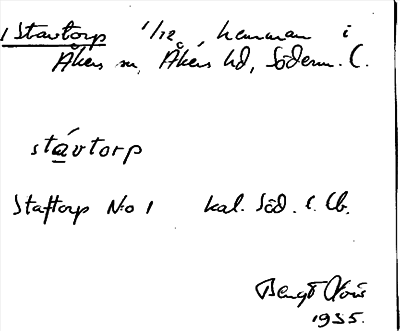 1 Stavtorp 1/12, hemman i
Åkers sn, Åkers hd, Söderm. l.
stávtorp
Staftorp No 1 kal. Söd. l.
Bengt
1935.